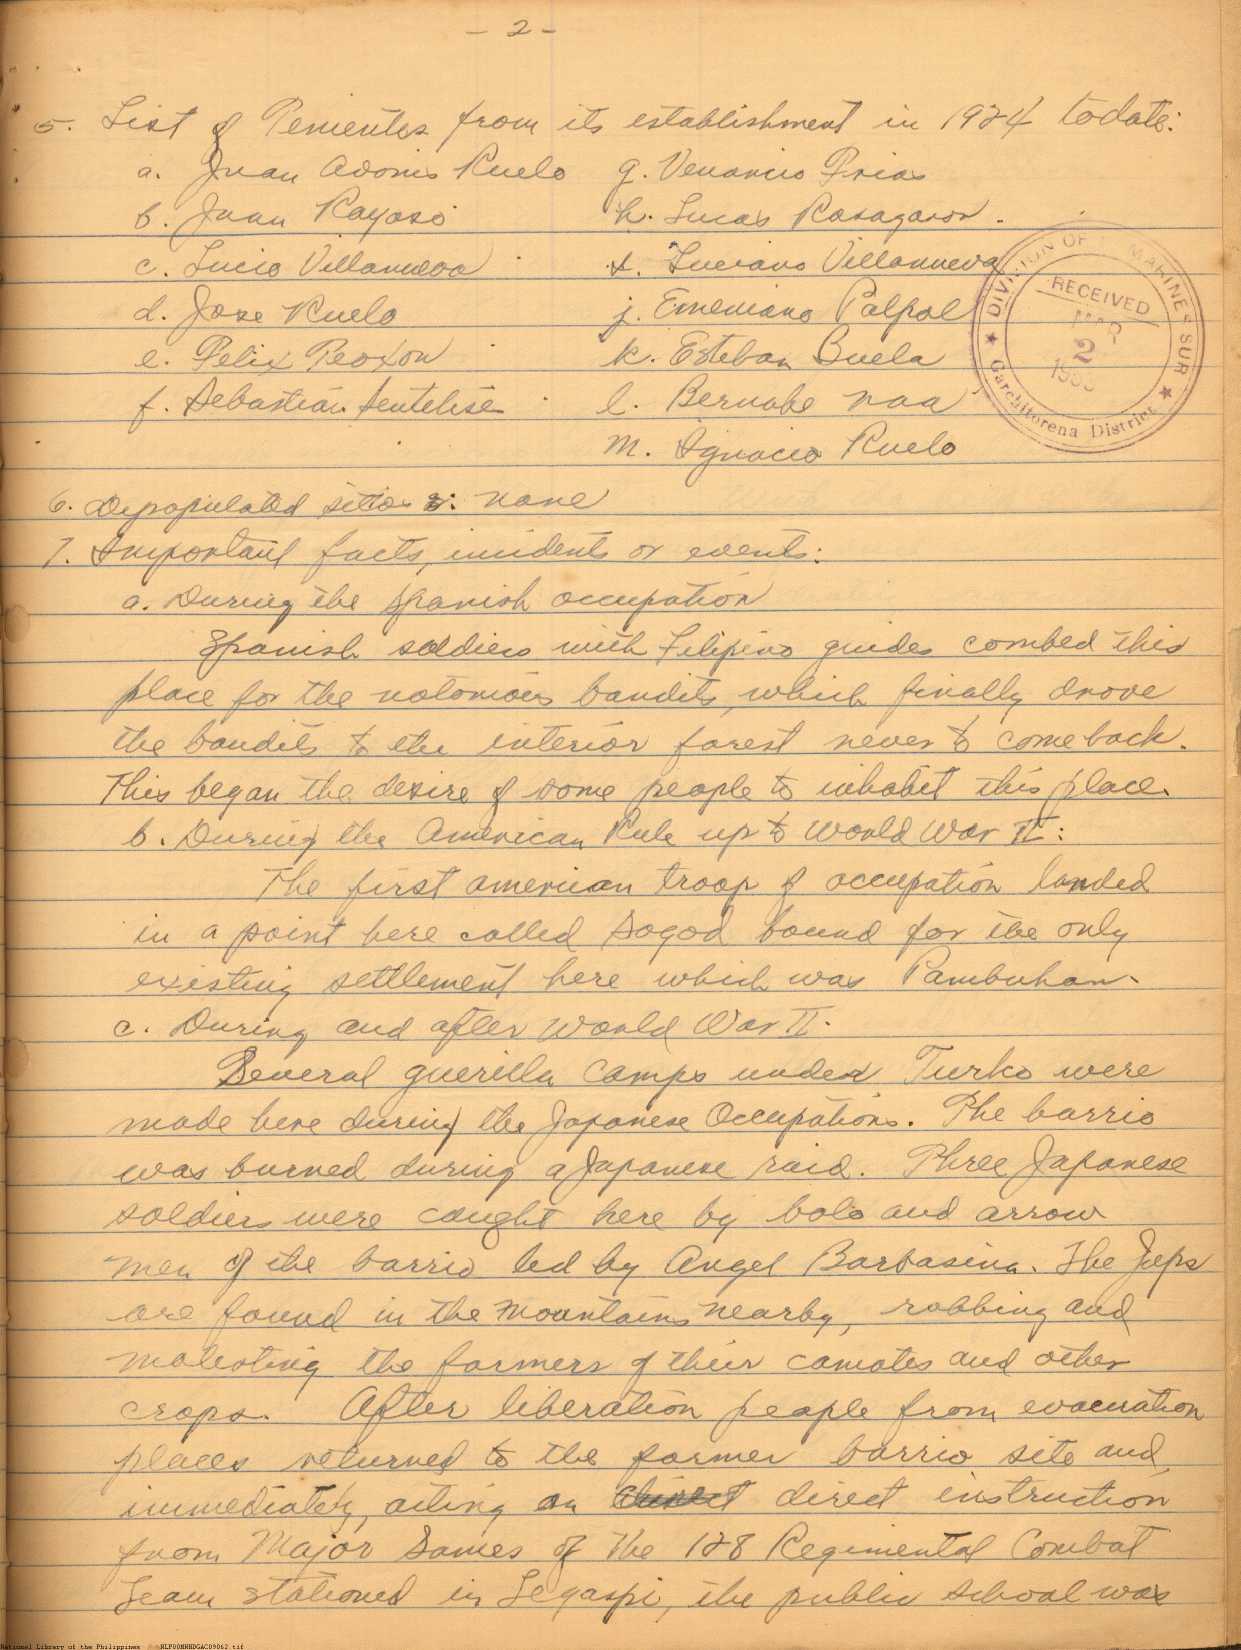 - 2 -
5. List of Tenientes from its establishment in 1924 to date:
a. Juan Adonis Ruelo
b. Juan Rayoso
c. Lucio Villanueva
d. Jose Ruelo
e. Felix Peoxon
f. Sebastian
g. Venancio Frias
h. Lucas Rasagaron.
i. Luciano Villanueva
j. Emeniano Palpal
k. Esteban Buela
l. Bernabe Naa
m. Ignacio Ruelo
DIVISION OF CAMARINES SUR
RECEIVED
MAR
2
Garchitorena District
6. Depopulated sitios: none
7. Important facts, incidents or events:
a. During the Spanish occupation
Spanish soldiers with Filipino guides combed this
place for the notorious bandits, which finally drove
the bandits to the interior forest never to come back.
This began the desire of some people to inhabit this place.
b. During the American Rule up to World War II:
The first american troop of occupation landed
in a point here called Sogod bound for the only
existing settlement here which was Pambuhan.
c. During and after World War II.
Several guerilla camps under Turko were
made here during the Japanese Occupations. The barrio
was burned during a Japanese raid. Three Japanese
soldiers were caught here by bolo and arrow
men of the barrio led by Angel Barbasina. The Japs
are found in the mountains nearby, robbing and
molesting the farmers of their camotes and other
crops. After liberation people from evacuation
places returned to the former barrio site and,
immediately, acting on direct instruction
from Major Sames of the 128 Regimental Combat
Team stationed in Legaspi, the public school was
National Library of the Philippines NLP00MNHDGAC09062.tif